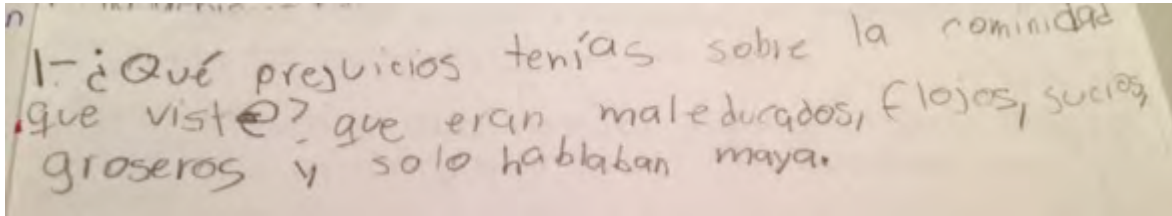 1-¿Qué prejuicios tenías sobre la cominidad
que viste? que eran maleducados, flojos, sucios,
groseros y solo hablaban maya.